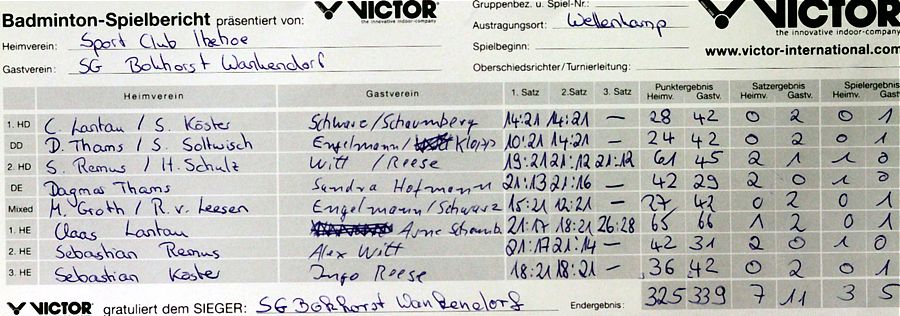 Badminton-Spielbericht präsentiert von: VICTOR the innovative indoor-company Gruppenbez. u. Spiel-Nr.: VICTOR the innovative indoor-company
Heimverein: Sport Club Itzehoe Austragungsort: Wellenkamp
Spielbeginn: www.victor-international.com
Gastverein: SG Bokhorst Wankendorf Oberschiedsrichter/Turnierleitung:
Heimverein Gastverein 1. Satz 2.Satz 3. Satz Punktergebnis Heimv. Gastv. Satzergebnis Heimv. Gastv. Spielergebnis Heimv. Gastv.
1. HD C. Lantau / S. Köster Schwarz/Schaumberg 14:21 14:21 — 28 42 0 2 0 1
DD D. Thams / S. Soltwisch Engelmann/ 10:21 14:21 — 24 42 0 2 0 1
2. HD S. Remus / H. Schulz Witt / Reese 19:21 21:12 21:12 61 45 2 1 1 0
DE Dagmar Thams Sandra Hofmann 21:13 21:16 — 42 29 2 0 1 0
Mixed M. Groth / R. v. Leesen Engelmann/Schwarz 15:21 12:21 — 27 42 0 2 0 1
1. HE Claas Lantau Arne Schaumb. 21:17 18:21 26:28 65 66 1 2 0 1
2. HE Sebastian Remus Alex Witt 21:17 21:14 — 42 31 2 0 1 0
3. HE Sebastian Köster Ingo Reese 18:21 18:21 — 36 42 0 2 0 1
VICTOR gratuliert dem SIEGER: SG Bokhorst Wankendorf Endergebnis: 325 339 7 11 3 5